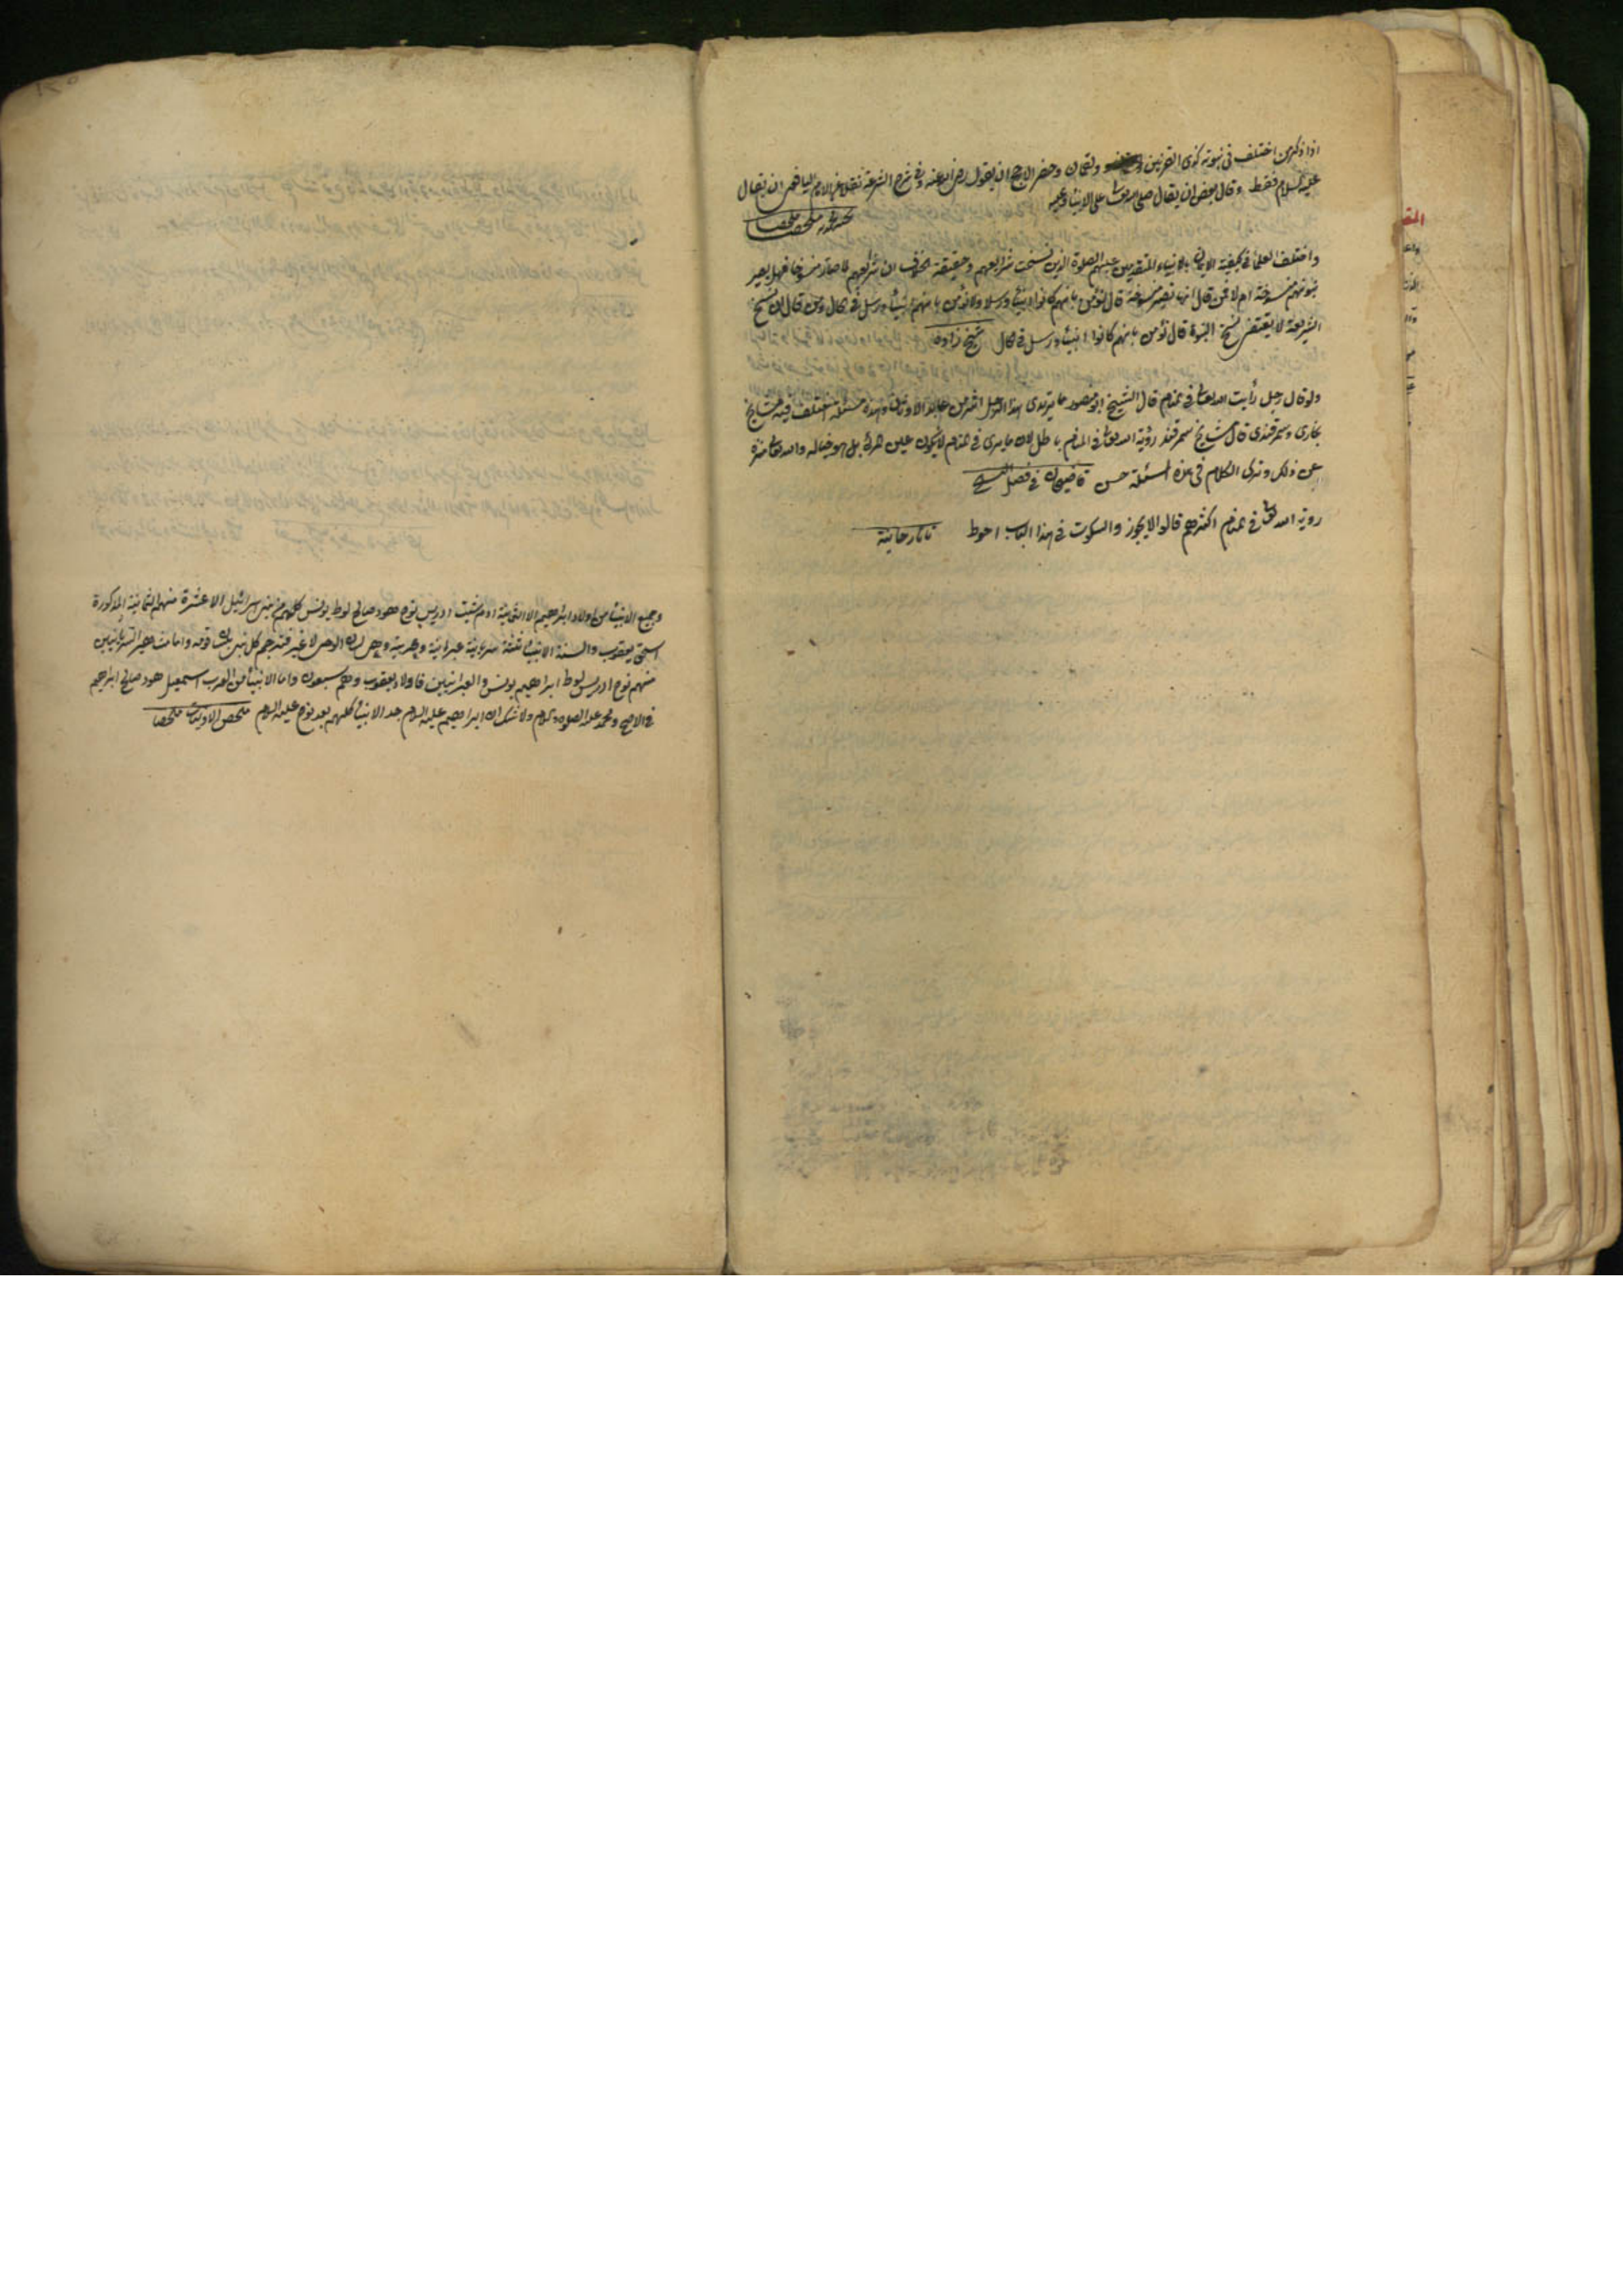 اذا ذكر من اختلف في نبوته كذي القرنين ولقمان وخضر الارجح ان يقول رضي الله عنه وفي شرح الشرعة نقلا عن الامام اليافعي ان يقال
عليه السلام فقط وقال بعض ان يقال صلى الله تعالى على الانبياء وعليه
ملخصا
واختلف العلماء في كيفية الايمان بالانبياء المتقدمين عليهم الصلوة الذين نسخت شرايعهم وحقيقة الخلاف ان شرايعهم لما صارت منسوخة فهل يصير
نبوتهم منسوخة ام لا فمن قال انها تصير منسوخة قال نؤمن بانهم كانوا انبياء ورسلا ولا نؤمن بانهم انبياء ورسل في الحال ومن قال ان نسخ
الشريعة لا يقتضي نسخ النبوة قال نؤمن بانهم كانوا انبياء ورسل في الحال شيخ زاده
ولو قال رجل رأيت الله تعالى في المنام قال الشيخ ابو منصور ماتريدى هذا الرجل اشر من عابد الاوثان وهذه مسئلة اختلف فيه مشايخ
بخارى وسمرقندى قال مشايخ سمرقند رؤية الله تعالى في المنام باطل لان ما يرى في المنام لا يكون عين المرئى بل هو خياله والله تعالى منزه
عن ذلك وترك الكلام في هذه المسئلة حسن قاضيخان في فصل التسبيح
روية الله تعالى في المنام اكثرهم قالوا لا يجوز والسكوت في هذا الباب احوط تاتارخانية
وجميع الانبياء من اولاد ابراهيم الا الثمانية ادم شيث ادريس نوح هود صالح لوط يونس كلهم من بنى اسرائيل الا عشرة منهم الثمانية المذكورة
اسحق يعقوب والسنة الانبياء ثلثة سريانية عبرانية وعربية وهي لسان الوحى لا غير فترجم كل نبي بلسان قومه واما من هم السريانيين
منهم نوح ادريس لوط ابراهيم يونس والعبرانيين فاولاد يعقوب وهم سبعون واما الانبياء من العرب اسمعيل هود صالح ابراهيم
في الاصح ومحمد عليه الصلوة والسلام ولا شك ان ابراهيم عليه السلام جد الانبياء كلهم بعد نوح عليه السلام ملخص الاوليات ملخصا